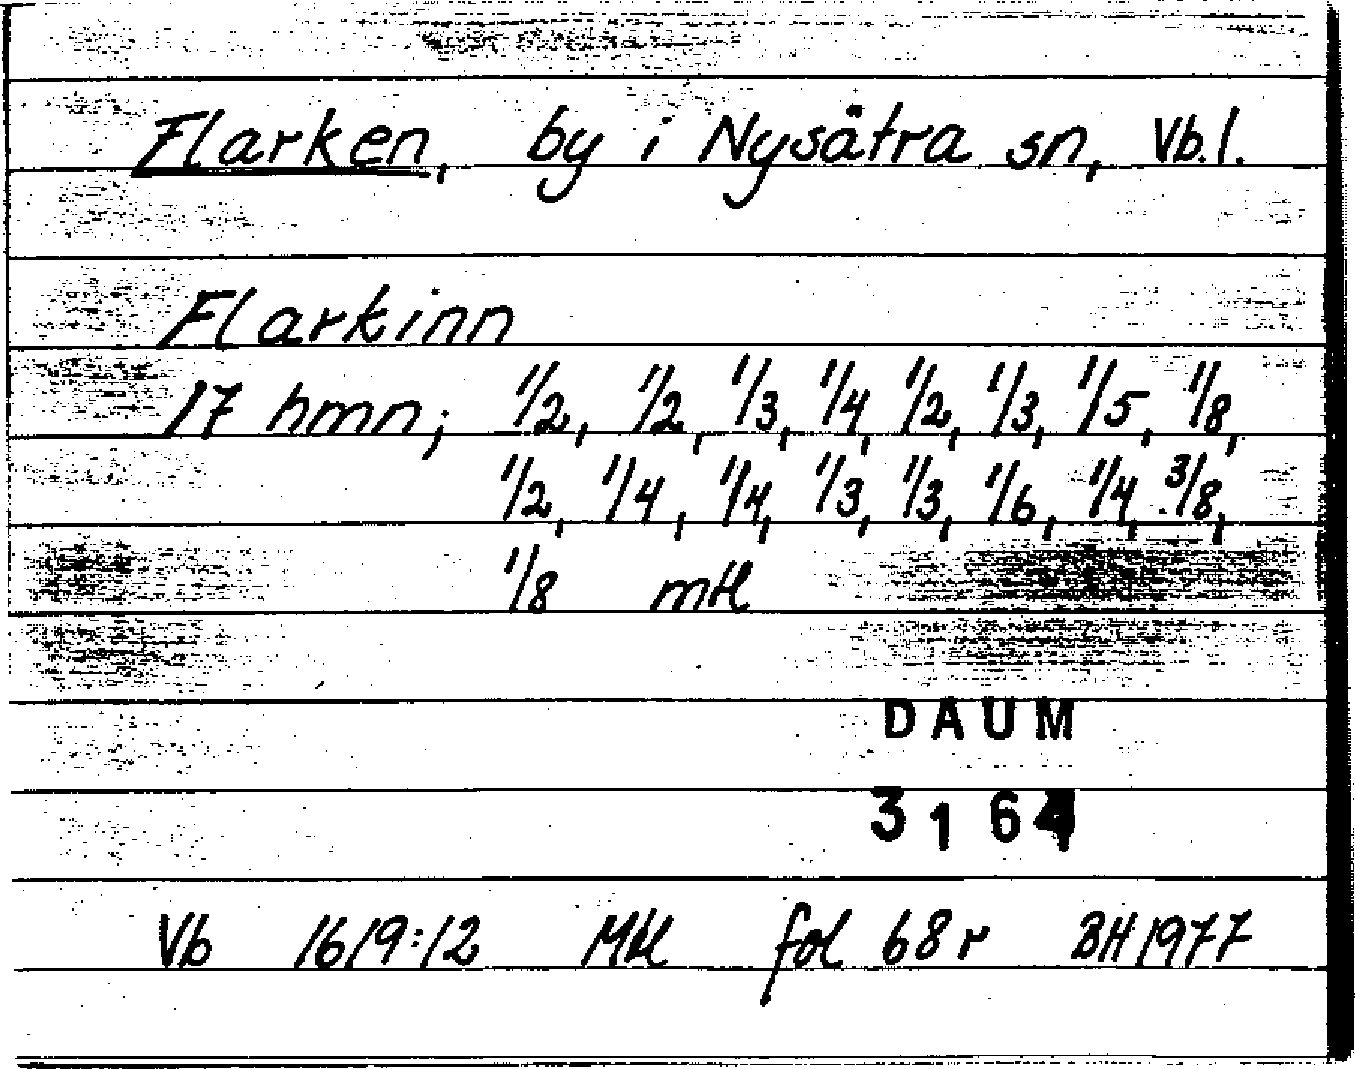 Flarken, by i Nysätra sn, Vb.l.
Flarkinn
17 hmn; 1/2, 1/2, 1/3, 1/4, 1/2, 1/3, 1/5, 1/8,
1/2, 1/4, 1/4, 1/3, 1/3, 1/6, 1/4, 3/8,
1/8 mtl
DAUM
3164
Vb 1619:12 Mtl fol 68r BH 1977